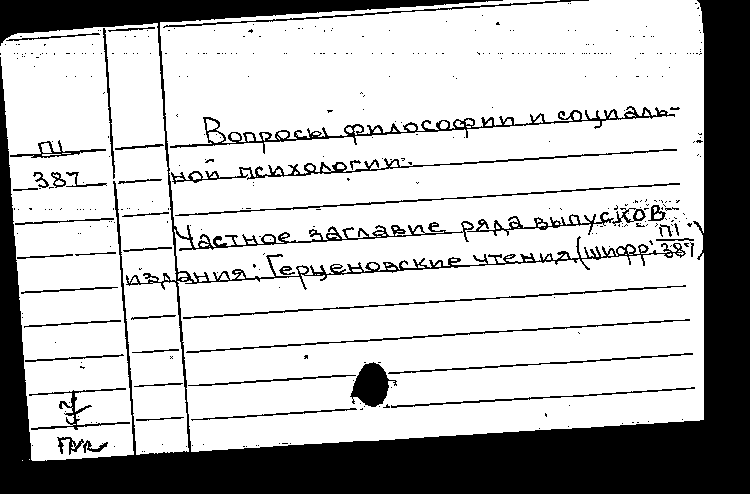 П1
387
Вопросы философии и социаль-
ной психологии.
Частное заглавие ряда выпусков
издания: Герценовские чтения. (шифр: П1
387)